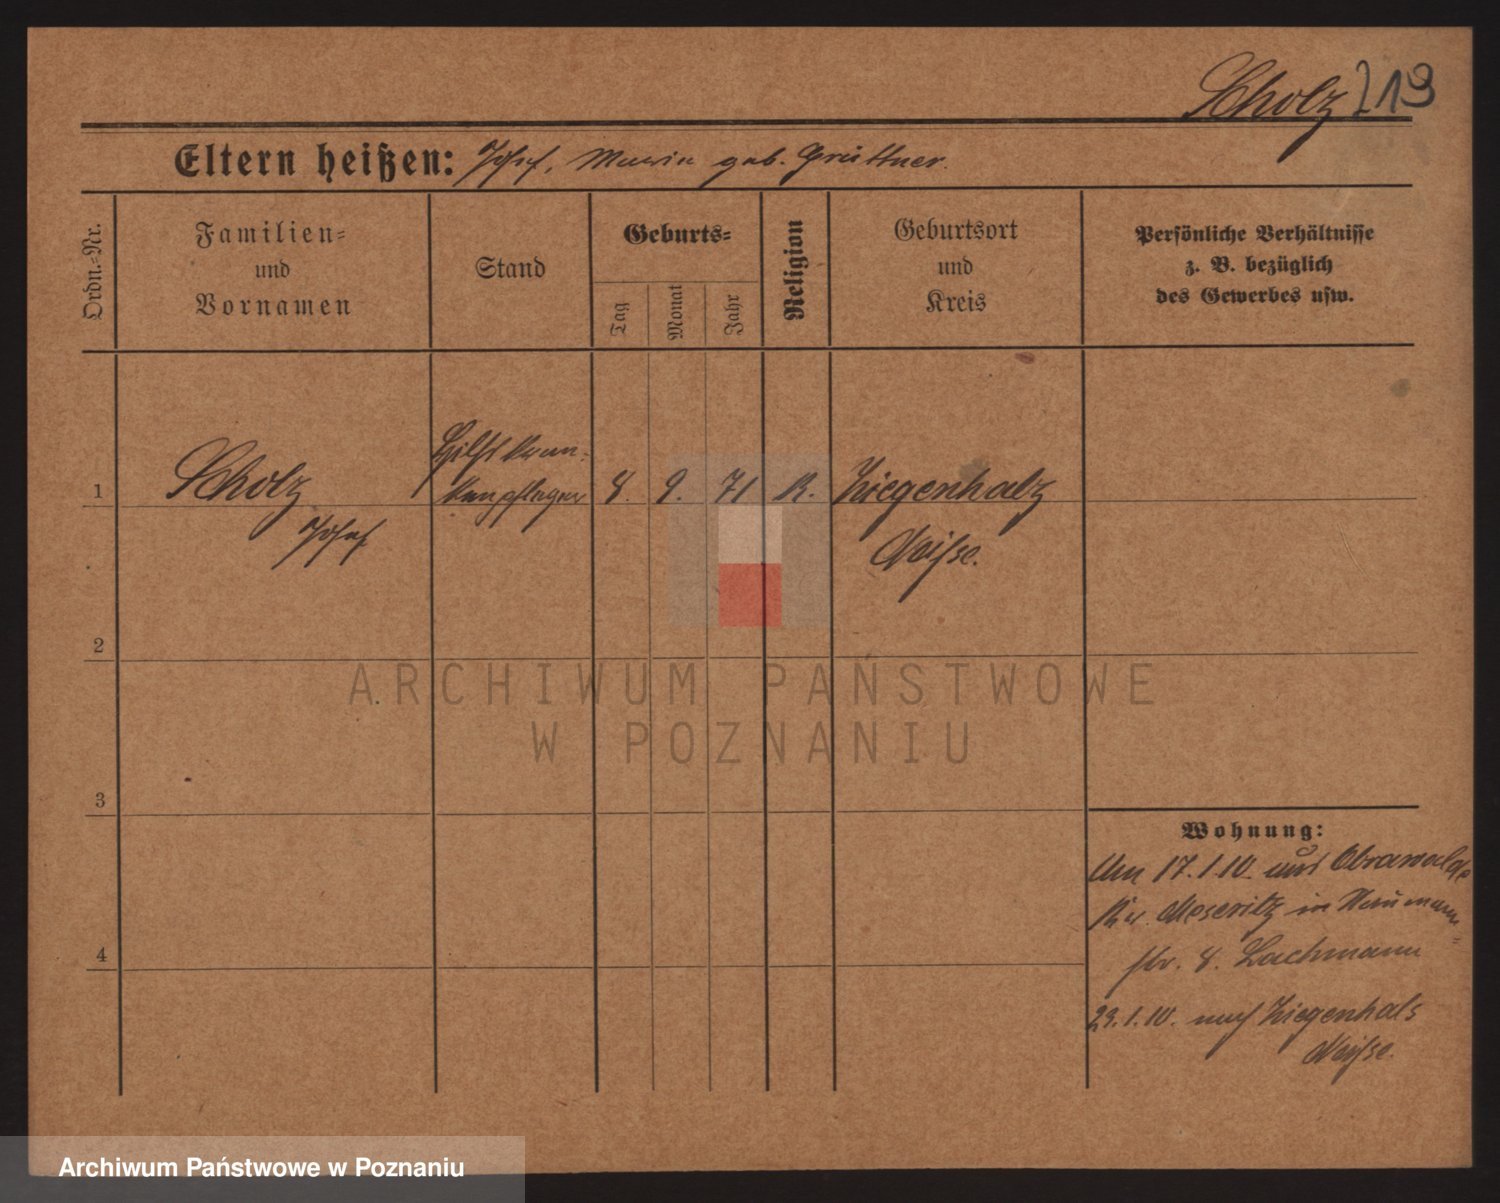 Scholz 219
Eltern heißen: Josef, Maria geb. Grüttner.
Ordn.-Nr.
Familien-
und
Vornamen
Stand
Geburts-
Tag
Monat
Jahr
Religion
Geburtsort
und
Kreis
Persönliche Verhältnisse
z. B. bezüglich
des Gewerbes usw.
1 Scholz
Josef
Hilfskran-
kenpfleger
8. 9. 71 K. Ziegenhalz
Neisse.
2
3
4
Wohnung:
17.1.10. aus Obrawalde
Kr. Meseritz in Naumann-
str. 8. Lachmann
29.1.10. nach Ziegenhals
Neisse.
ARCHIWUM PAŃSTWOWE
W POZNANIU
Archiwum Państwowe w Poznaniu